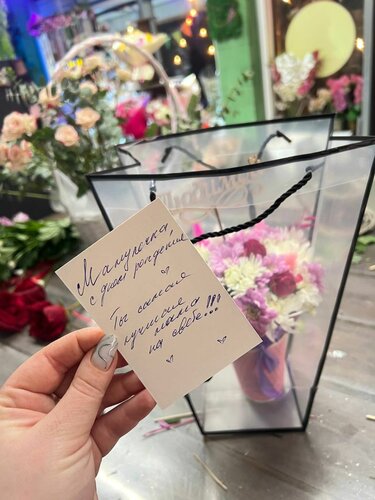 Мамулечка,
с днем рождения,
Ты самая
лучшая
мама
на свете...!!!